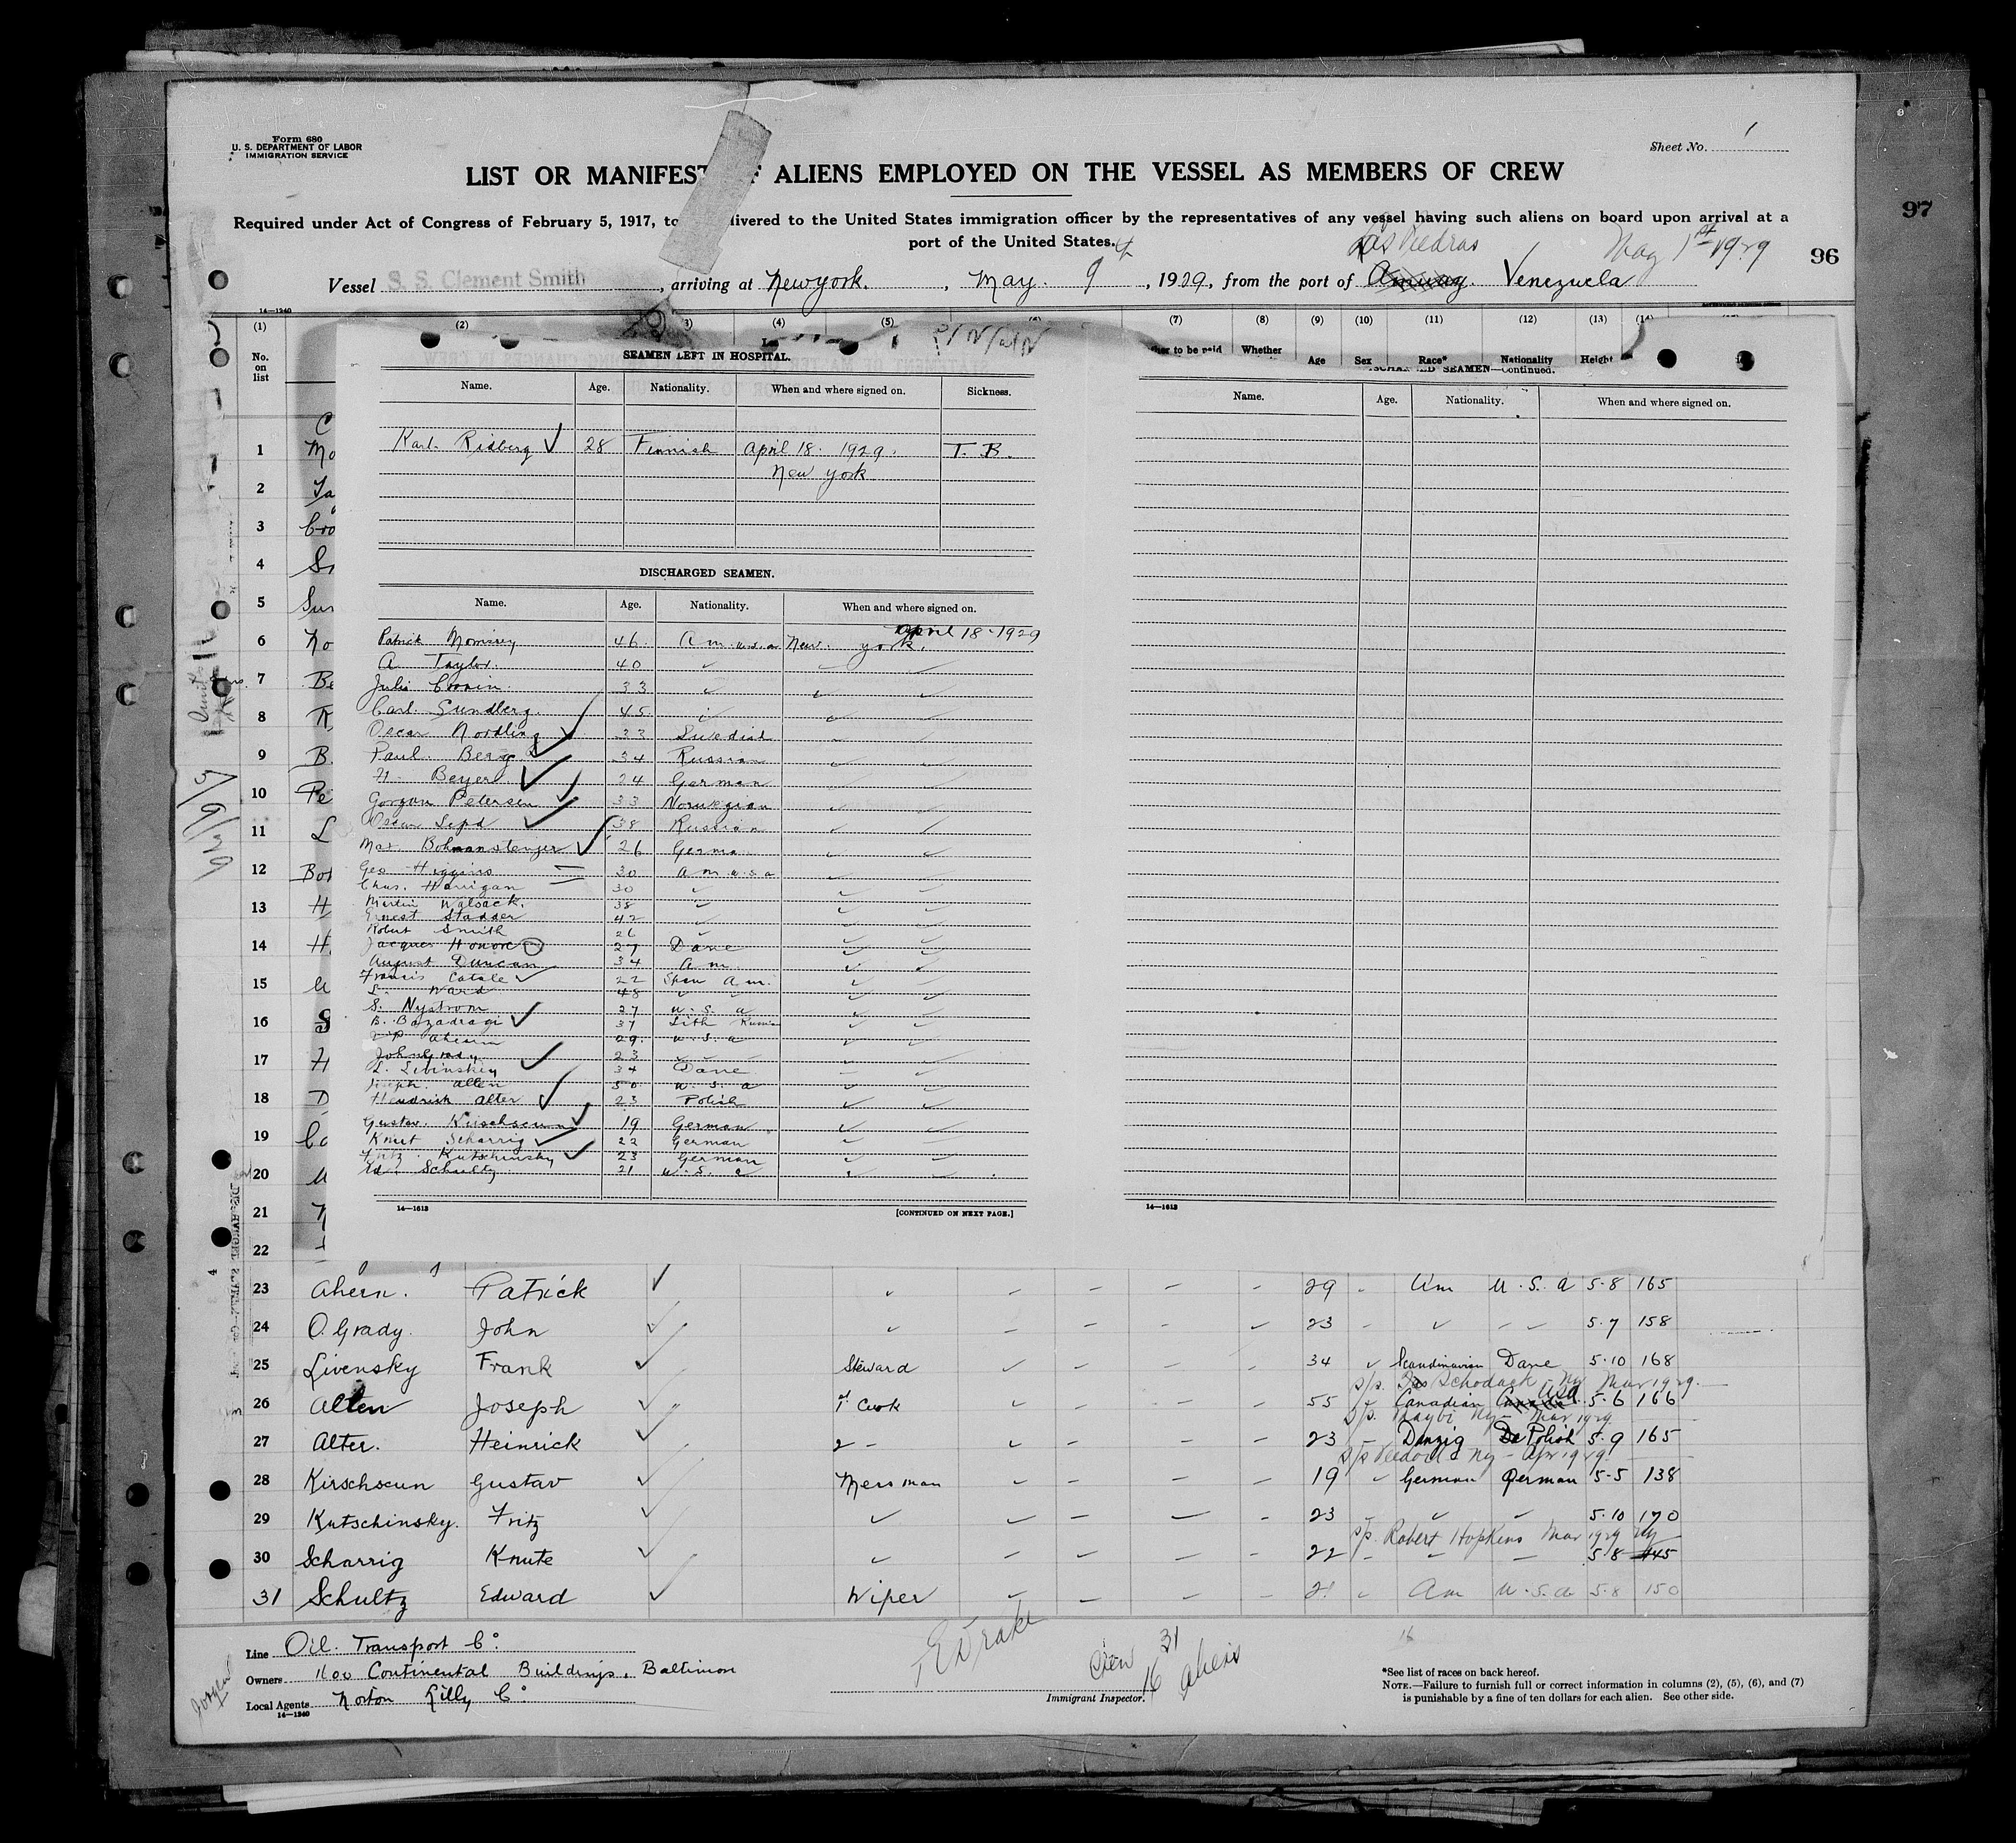 Form 680
U. S. DEPARTMENT OF LABOR
IMMIGRATION SERVICE
Sheet No. 1
LIST OR MANIFEST OF ALIENS EMPLOYED ON THE VESSEL AS MEMBERS OF CREW
Required under Act of Congress of February 5, 1917, to livered to the United States immigration officer by the representatives of any vessel having such aliens on board upon arrival at a
port of the United States.
97
96
Las Piedras May 1st 1929
Vessel S. S. Clement Smith, arriving at New york., May. 9, 1929, from the port of Amuay. Venezuela
14—1240
(1) (2) (3) (4) (5) (7) (8) (9) (10) (11) (12) (13)
No. on list
Whether Age Sex Race* Nationality Height
SEAMEN LEFT IN HOSPITAL.
Name. Age. Nationality. When and where signed on. Sickness.
Karl. Ridberg ✓ 28 Finnish April 18. 1929. T. B.
New york
DISCHARGED SEAMEN.
Name. Age. Nationality. When and where signed on.
April 18-1929
Patrick Morrisey 46. Am. u.s.a New. york.
A Taylor. 40 ✓
Julio 33 ✓
Carl. Sundberg. 45
Oscar Nordling ✓ 33 Swedish
Paul. Berg ✓ 34 Russian
H. Beyer ✓ 24 German
Petersen ✓ 33 Norwegian
Oscar Sepd ✓ 38 Russian
Max 26 Germa
Geo Higgins 30 am. u.s.a
Chas. Harrigan 30
Martin Walsack. 38
Ernest Stadder 42
Robert Smith 26
Jacques Honore 27 Dane
August Duncan 34 Am
Francis Catale ✓ 22 Span Am.
L. Ward 48
S. Nystrom 27 u. S. a
B. Bazadragi ✓ 31 Lith Russia
P Ahearn 29. u. S. a
John Grady 23
L. Livinskey ✓ 34 Dane
Joseph. Allen 50 u. S. a
Hendrick Alter ✓ 23 Polish
Gustav. Kirschseun ✓ 19 German
Knut Scharrig ✓ 22 German
Fritz Kutschinsky ✓ 23 German
Ed. Schultz 21 u. S. a
14—1613
[CONTINUED ON NEXT PAGE.]
DISCHARGED SEAMEN—Continued.
Name. Age. Nationality. When and where signed on.
14—1613
1 Mo
2 Ta
3 Cro
4
5 Sun
6 No
7 Be
8
9 B.
10 Pe
11 L
12 Bor
13 H
14 H.
15
16 S
17 H
18 D
19 Co
20
21
22
23 Ahern. Patrick ✓ 29 Am U. S. A 5-8 165
24 O. Grady. John ✓ 23 5.7 158
25 Livensky Frank ✓ Steward 34 ✓ Scandinavian Dane 5-10 168
Schodack - Ny Mar 1929.
26 Allen Joseph ✓ 1st Cook 55 Canadian Canada USA 5-6 166
Ny - Mar 1929
27 Alter. Heinrick ✓ 2 - 23 Danzig Polish 5-9 165
Ny - Apr 1929
28 Kirschseun Gustav ✓ Messman 19 ✓ German German 5-5 138
29 Kutschinsky. Fritz ✓ 23 5-10 170
s/s. Robert Hopkins Mar 1929 Ny
30 Scharrig Knute ✓ 22 5-8 145
31 Schultz Edward ✓ Wiper 21 Am U. S. a. 5-8 150
Line Oil. Transport Co.
Owners 1100 Continental Buildings. Baltimore
Local Agents Norton Lilly Co.
14—1240
Drake
Crew 31
16 aliens
Immigrant Inspector.
*See list of races on back hereof.
NOTE.—Failure to furnish full or correct information in columns (2), (5), (6), and (7)
is punishable by a fine of ten dollars for each alien. See other side.